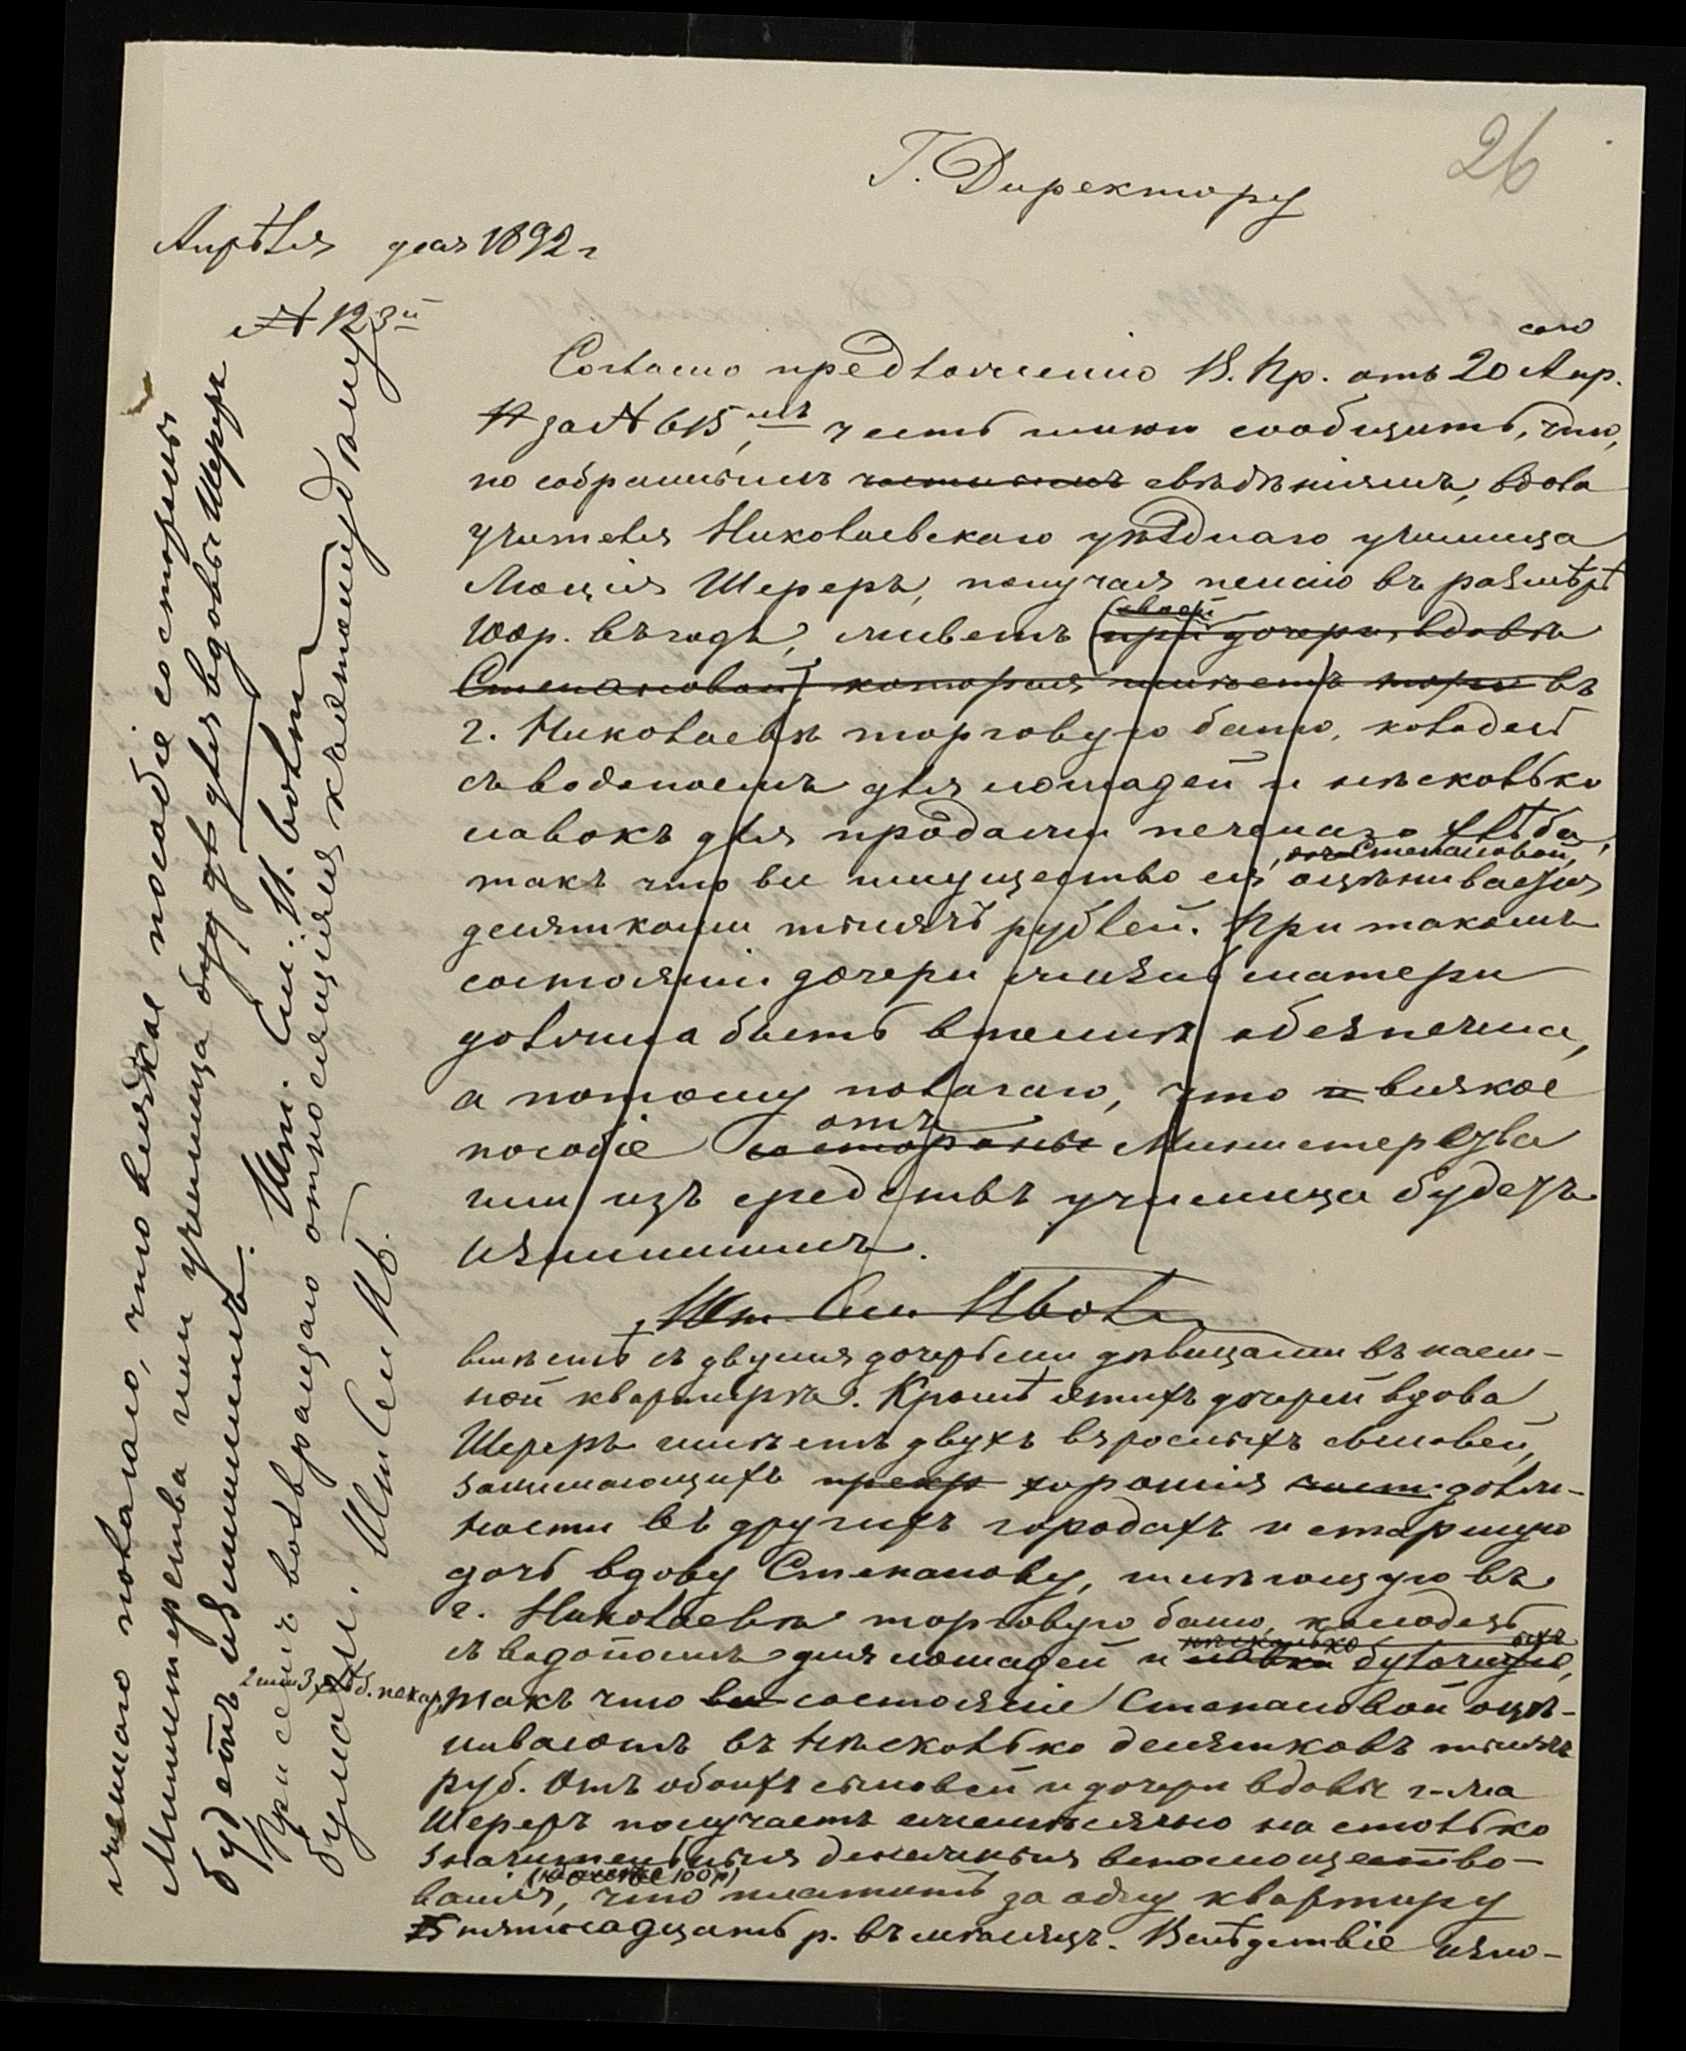 26
Г. Директору
Апрѣля дня 1892 г
№ 123й
Согласно предложенію В. Пр. отъ 20 сего Апр.
за № 615, имѣю честь сообщить, что,
по собраннымъ частнымъ свѣдѣніямъ, вдова
учителя Николаевскаго уѣзднаго училища
Люція Шереръ, получая пенсію въ размѣрѣ
100 р. въ годъ, живетъ (при своей дочери, вдовѣ
Степановой, которая имѣетъ торго въ
г. Николаевѣ торговую баню, колодезь
съ водопоемъ для лошадей и нѣсколько
лавокъ для продажи печенаго хлѣба,
такъ что все имущество ея, Степановой, оцѣнивается
десятками тысячъ рублей. При такомъ
состояніи дочери жизнь матери
должна быть вполнѣ обезпечена,
а потому полагаю, что и всякое
пособіе со стороны отъ Министерства
или изъ средствъ училища будетъ
излишнимъ.
Шт. См. Ив. Воли
вмѣстѣ съ двумя дочерьми дѣвицами въ наем-
ной квартирѣ. Кромѣ этихъ дочерей вдова
Шереръ имѣетъ двухъ взрослыхъ сыновей,
занимающихъ прекр хорошія част. долж-
ности въ другихъ городахъ и старшую
дочь вдову Степанову, имѣющую въ
г. Николаевѣ торговую баню, колодезь
съ водопоемъ для лошадей и нѣсколько лавки булочныхъ,
2 или 3 хлѣб. пекар, такъ что все состояніе Степановой оцѣ-
ниваютъ въ нѣсколько десятковъ тысячъ
руб. Отъ обоихъ сыновей и дочери вдовы г-жа
Шереръ получаетъ ежемѣсячно на столько
значительныя денежныя вспомощество-
ванія, (не менѣе 100 р) что платитъ за одну квартиру
пятнадцать р. въ мѣсяцъ. Вслѣдствіе изло-
женнаго полагаю, что всякое пособіе со стороны
Министерства или училища буд для вдовы Шереръ
будетъ излишнимъ. Шт. См. И. Воли
При семъ возвращаю относящіяся къ настоящ. дѣлу
бумаги. Шт См Ив.